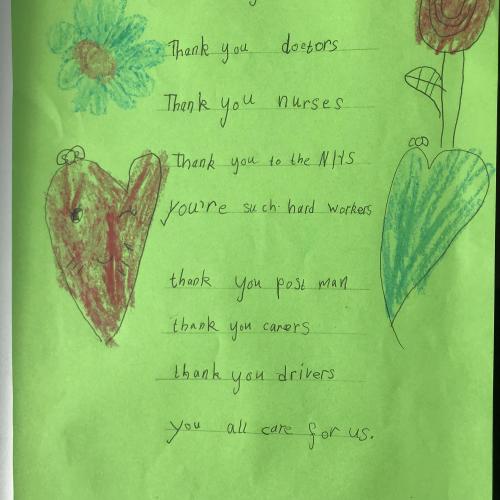 Thank you doctors
Thank you nurses
Thank you to the NHS
you're such hard workers
thank you post man
thank you carers
thank you drivers
you all care for us.